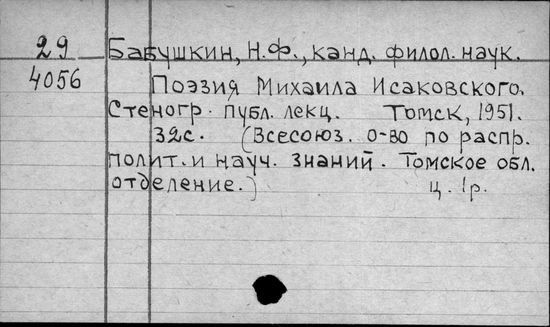 29 Бабушкин, Н.Ф., канд. филол. наук.
4056 Поэзия Михаила Исаковского.
Стеногр. публ. лекц. Томск, 1951.
32с. (Всесоюз. о-во по распр.
полит. и науч. знаний. Томское обл.
отделение.) ц. 1р.